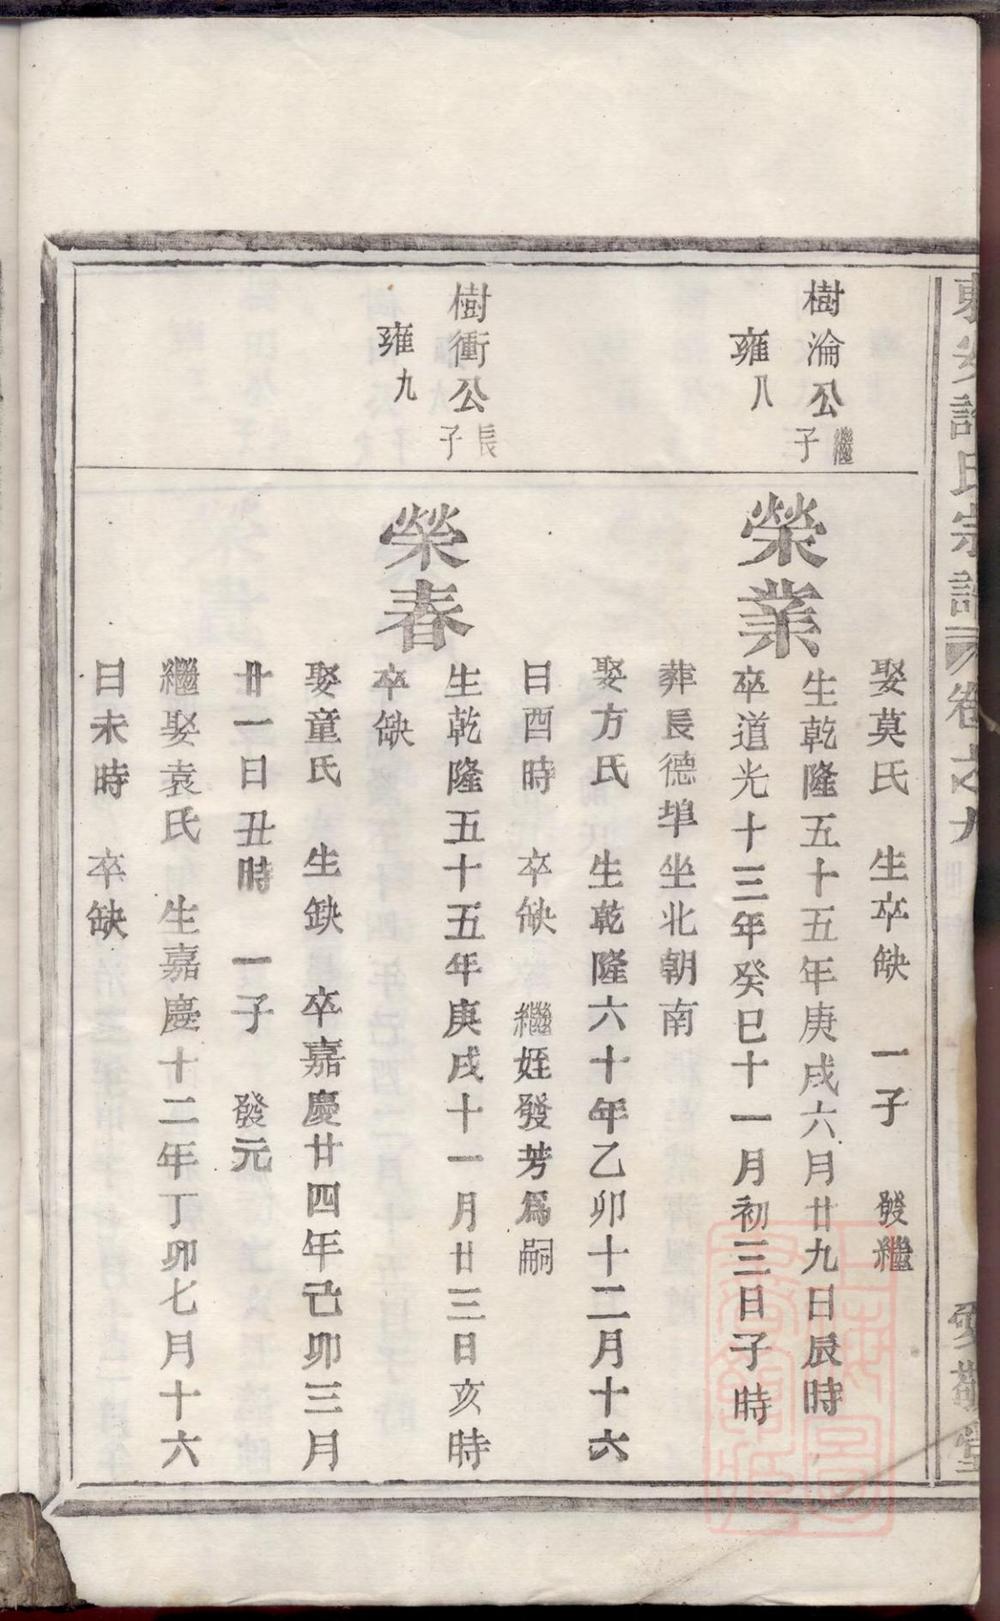 許氏宗譜 卷之九
愛敬堂
娶莫氏 生卒缺 一子 發繼
樹淪公繼子
雍八
榮業
生乾隆五十五年庚戌六月廿九日辰時
卒道光十三年癸巳十一月初三日子時
葬長德埠坐北朝南
娶方氏 生乾隆六十年乙卯十二月十六
日酉時 卒缺 繼姪發芳爲嗣
樹衝公長子
雍九
榮春
生乾隆五十五年庚戌十一月廿三日亥時
卒缺
娶童氏 生缺 卒嘉慶廿四年己卯三月
廿一日丑時 一子 發元
繼娶袁氏 生嘉慶十二年丁卯七月十六
日未時 卒缺